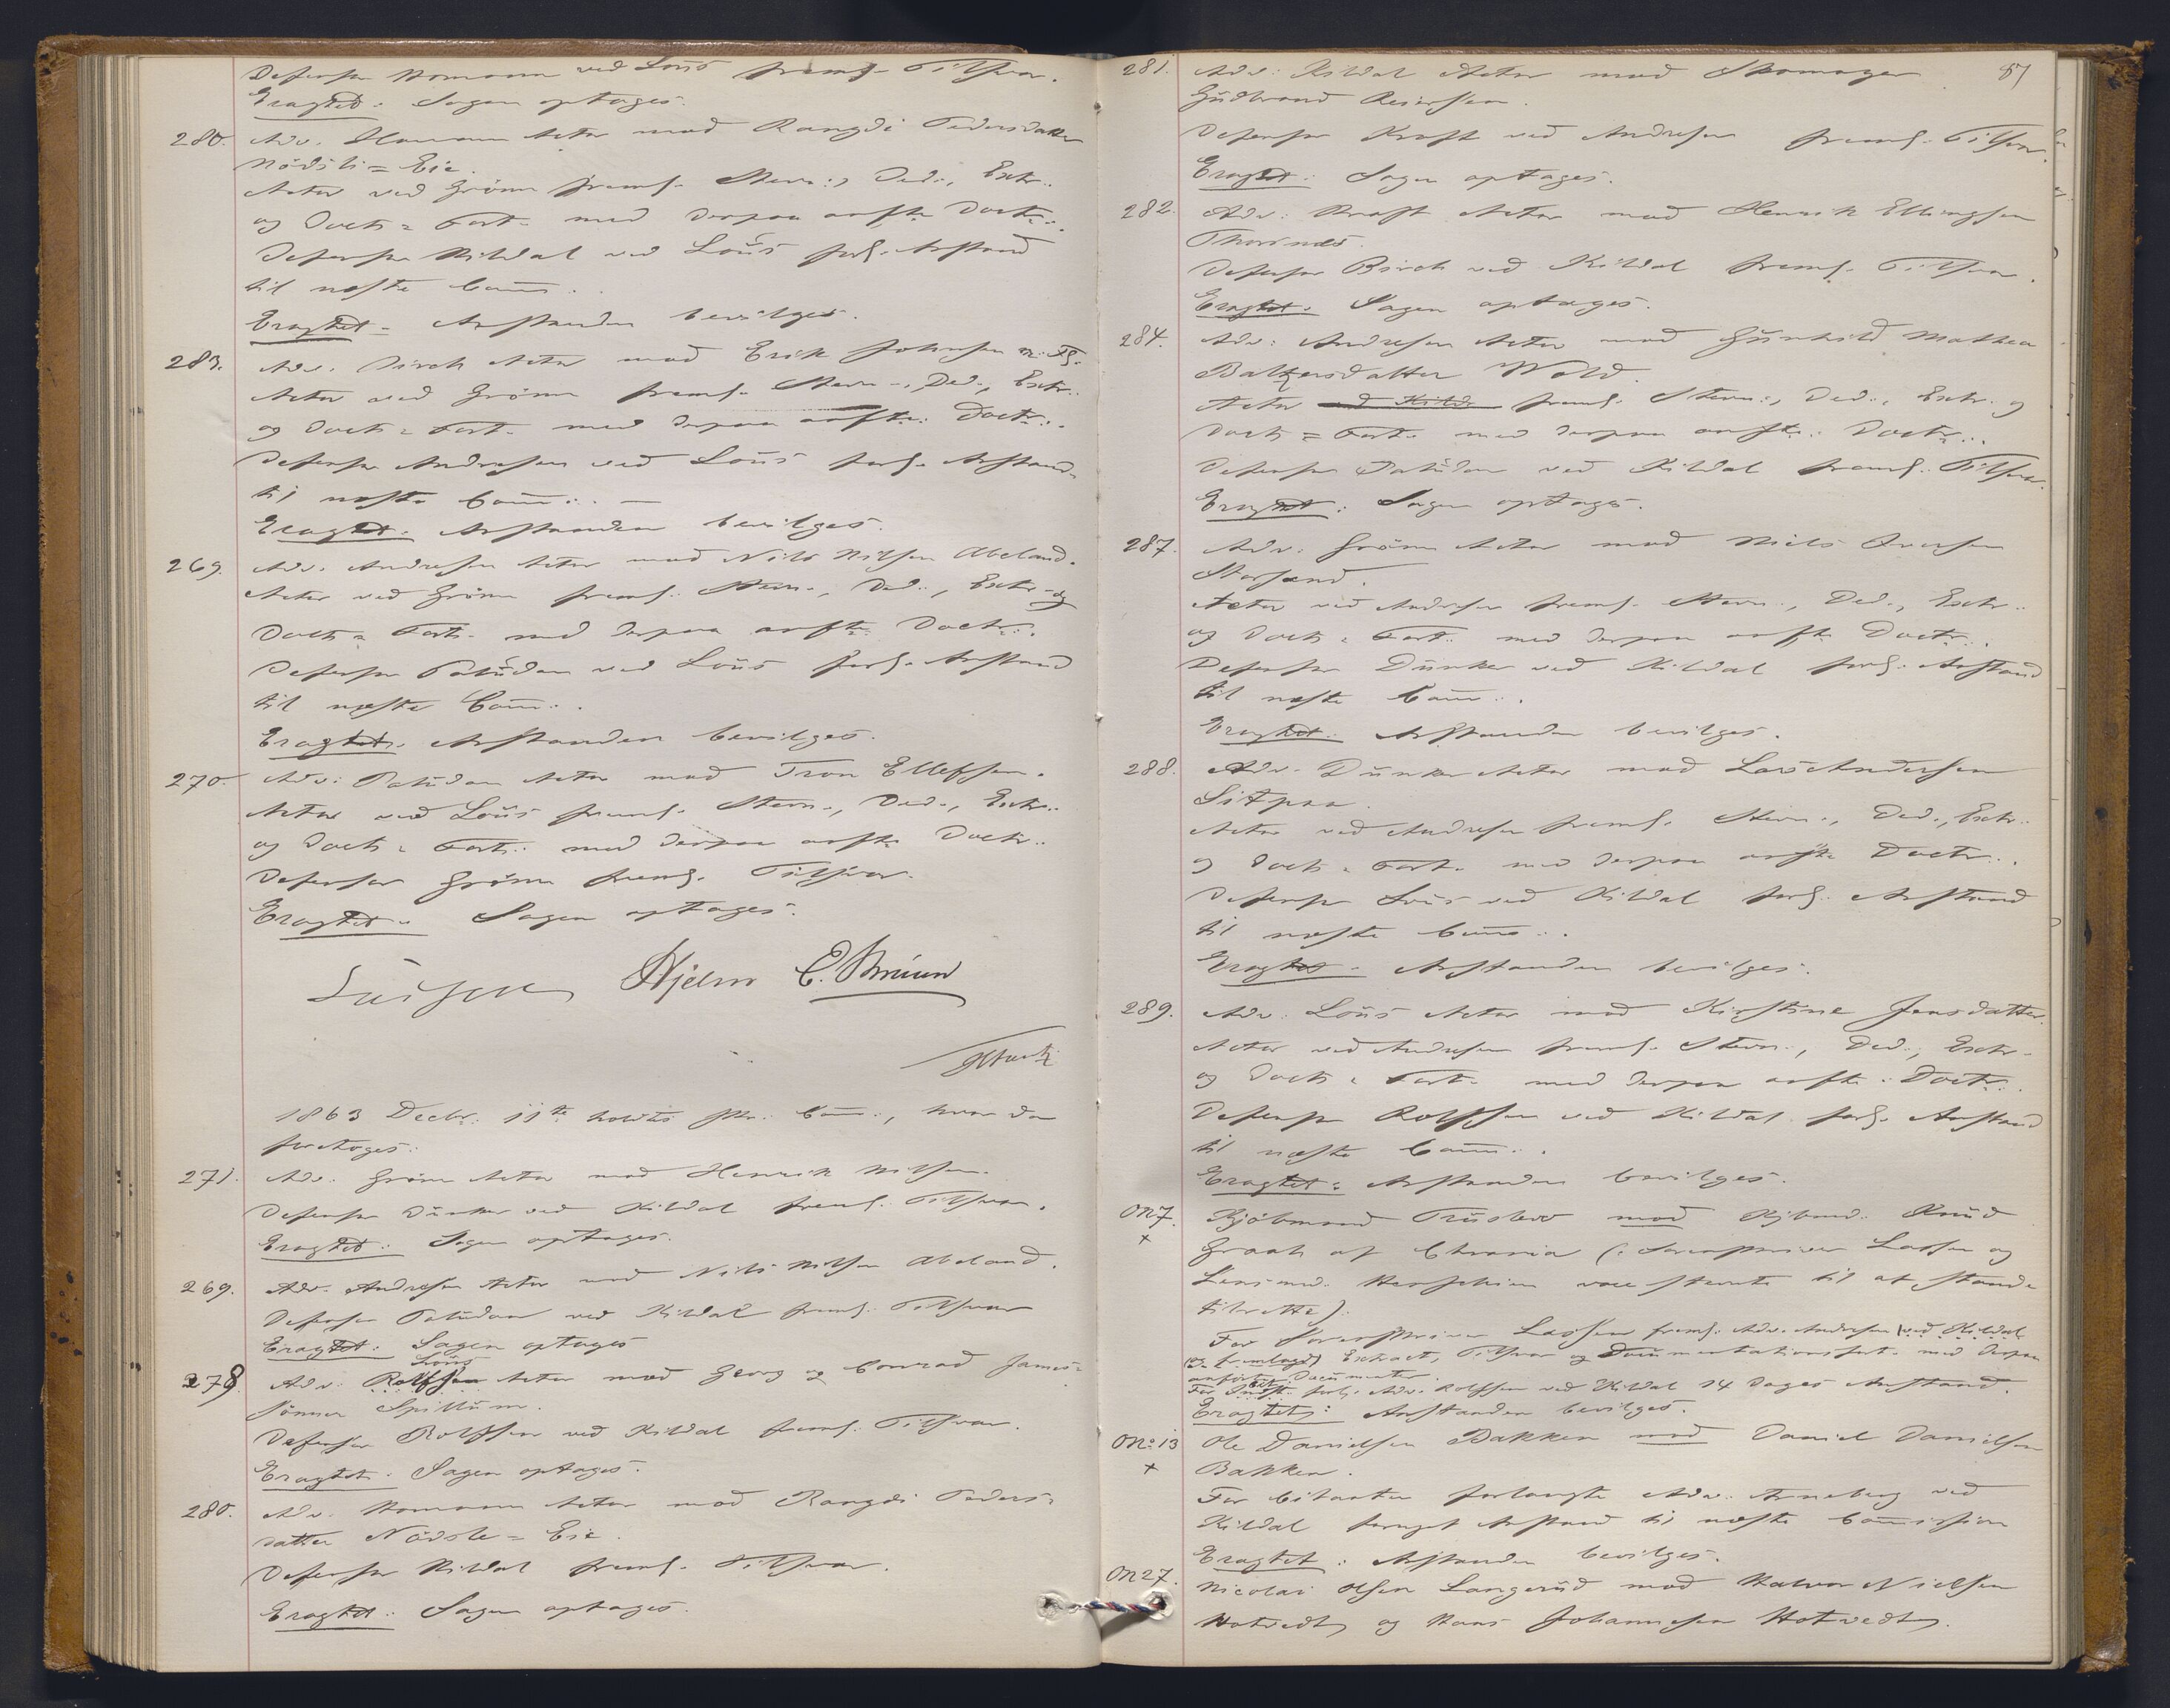 Defensor Homann ved Löüs freml. Tilsvar.
Eragtet: Sagen optages.
280. Adv. Homann Actor mod Rangdi Pedersdatter
Nödsli=Eie.
Actor ved Grönn freml. Stevn., Ded., Extr.
og Doct=Fort. med derpaa anførte Doctr.
Defensor Kildal ved Löüs forl. Anstand
til næste Comm.
Eragtet: Anstanden bevilges.
283. Adv. Birch Actor mod Erik Johnsen m. Fl.
Actor ved Grönn freml. Stevn., Ded., Extr.
og Doct=Fort. med derpaa anførte Doctr.
Defensor Andresen ved Löüs forl. Anstand
til næste Comm.
Eragtet: Anstanden bevilges.
269. Adv. Andresen Actor mod Nils Nilsen Abeland.
Actor ved Grönn freml. Stevn., Ded., Extr. og
Doct=Fort. med derpaa anførte Doctr.
Defensor Paludan ved Löüs forl. Anstand
til næste Comm.
Eragtet: Anstanden bevilges.
270. Adv. Paludan Actor mod Tron Ellefsen.
Actor ved Löüs freml. Stevn., Ded., Extr.
og Doct=Fort. med derpaa anførte Doctr.
Defensor Grönn freml. Tilsvar.
Eragtet: Sagen optages.
Hjelm E. Bruun
1863 Decbr. 11te holdtes Comm., hvor da
foretoges:
271. Adv. Grönn Actor mod Henrik Nilsen.
Defensor Dunker ved Kildal freml. Tilsvar.
Eragtet: Sagen optages.
269. Adv. Andresen Actor mod Nils Nilsen Abeland.
Defensor Paludan ved Kildal freml. Tilsvar
Eragtet: Sagen optages
Löüs
278. Adv. Rolfsen Actor mod Georg og Conrad James=
sönner Spillum.
Defensor Rolfsen ved Kildal freml. Tilsvar.
Eragtet: Sagen optages.
280. Adv. Homann Actor mod Rangdi Peders=
datter Nödsle=Eie.
Defensor Kildal freml. Tilsvar.
Eragtet: Sagen optages.
87
281. Adv. Kildal Actor mod Skomager
Gudbrand Reiersen.
Defensor Kraft ved Andresen freml. Tilsvar.
Eragtet: Sagen optages.
282. Adv. Kraft Actor mod Henrik Ellingsen
Thornæs.
Defensor Birch ved Kildal freml. Tilsvar.
Eragtet: Sagen optages.
284. Adv. Andresen Actor mod Gunhild Mathea
Baltzersdatter Wold.
Actor ved Kild freml. Stevn., Ded., Extr. og
Doct=Fort. med derpaa anførte Doctr.
Defensor Paludan ved Kildal freml. Tilsvar.
Eragtet: Sagen optages.
287. Adv. Grönn Actor mod Niels Iversen
Storsand.
Actor ved Andresen freml. Stevn., Ded., Extr.
og Doct=Fort. med derpaa anførte Doctr.
Defensor Dunker ved Kildal forl. Anstand
til næste Comm.
Eragtet: Anstanden bevilges.
288. Adv. Dunker Actor mod Lars Andersen
Sitpaa.
Actor ved Andresen freml. Stevn., Ded., Extr.
og Doct=Fort. med derpaa anførte Doctr.
Defensor Löüs ved Kildal forl. Anstand
til næste Comm.
Eragtet: Anstanden bevilges.
289. Adv. Löüs Actor mod Kirstine Jensdatter.
Actor ved Andresen freml. Stevn., Ded., Extr.
og Doct=Fort. med derpaa anførte Doctr.
Defensor Rolfsen ved Kildal forl. Anstand
til næste Comm.
Eragtet: Anstanden bevilges.
ON 7. Kjöbmand Trulsen mod Kjbmd. Knud
+
Graah af Chrania (: Sorenskriver Lassen og
Lensmd. vare stevnte til at stande
tilrette).
For Sorenskriver Lassen freml. Adv. Andresen (ved Kildal
Extract, Tilsvar og Documentationsfort. med derpaa
anførte Documenter.
For forl. Adv. Rolfsen ved Kildal 14 Dages Anstand.
Eragtet: Anstanden bevilges.
ONo 13 Ole Danielsen Bakken mod Daniel Danielsen
+
Bakken.
For Citanten forlangte Adv. Arneberg ved
Kildal fornyet Anstand til næste Commission
Eragtet: Anstanden bevilges.
ON 27. Nicolai Olsen Langerud mod Halvor Nielsen
Hotvedt og Hans Johannesen Hotvedt.